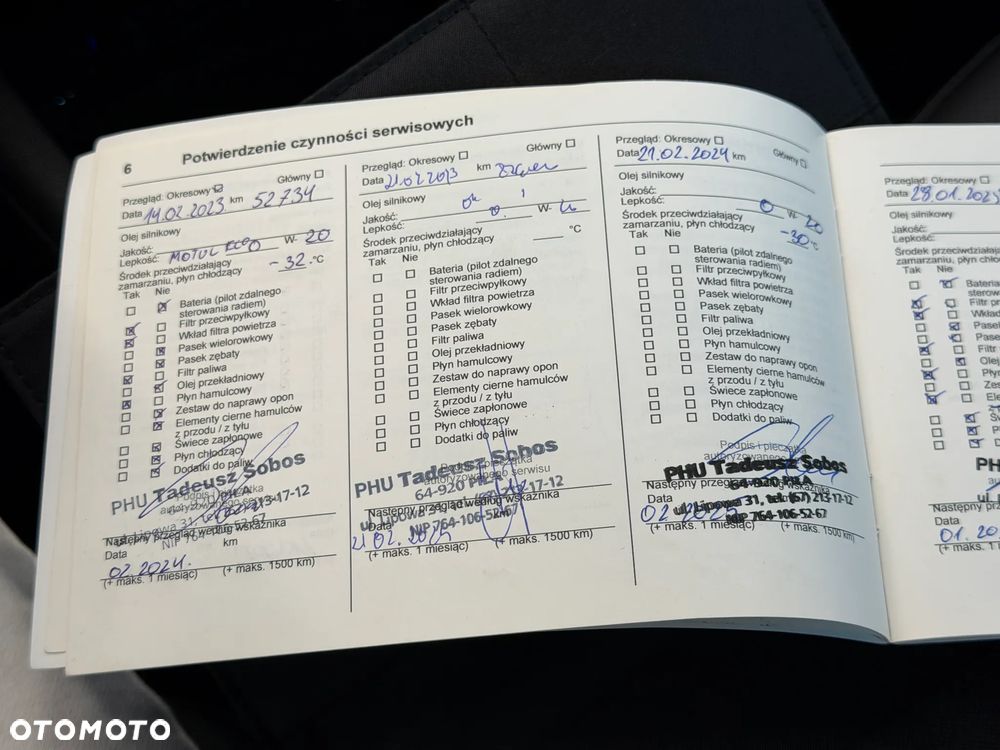 6
Potwierdzenie czynności serwisowych
Przegląd: Okresowy
Główny
Data 14.02.2023 km 52734
Olej silnikowy
Jakość: MOTUL
Lepkość: 0 W- 20
Środek przeciwdziałający
zamarzaniu, płyn chłodzący -32 °C
Tak Nie
Bateria (pilot zdalnego
sterowania radiem)
Filtr przeciwpyłkowy
Wkład filtra powietrza
Pasek wielorowkowy
Pasek zębaty
Filtr paliwa
Olej przekładniowy
Płyn hamulcowy
Zestaw do naprawy opon
Elementy cierne hamulców
z przodu / z tyłu
Świece zapłonowe
Płyn chłodzący
Dodatki do paliw
PHU Tadeusz Sobos
Podpis i pieczątka
Następny przegląd według wskaźnika
Data km
02.2024.
(+ maks. 1 miesiąc) (+ maks. 1500 km)
Przegląd: Okresowy
Główny
Data km
Olej silnikowy
Jakość:
Lepkość: W-
Środek przeciwdziałający
zamarzaniu, płyn chłodzący °C
Tak Nie
Bateria (pilot zdalnego
sterowania radiem)
Filtr przeciwpyłkowy
Wkład filtra powietrza
Pasek wielorowkowy
Pasek zębaty
Filtr paliwa
Olej przekładniowy
Płyn hamulcowy
Zestaw do naprawy opon
Elementy cierne hamulców
z przodu / z tyłu
Świece zapłonowe
Płyn chłodzący
Dodatki do paliw
PHU Tadeusz Sobos
Podpis i pieczątka
autoryzowanego serwisu
64-920 PIŁA
Następny przegląd według wskaźnika
NIP 764-106-52-67
21.02.2025
(+ maks. 1 miesiąc) (+ maks. 1500 km)
Przegląd: Okresowy
Główny
Data 21.02.2024 km
Olej silnikowy
Jakość:
Lepkość: 0 W- 20
Środek przeciwdziałający
zamarzaniu, płyn chłodzący -30 °C
Tak Nie
Bateria (pilot zdalnego
sterowania radiem)
Filtr przeciwpyłkowy
Wkład filtra powietrza
Pasek wielorowkowy
Pasek zębaty
Filtr paliwa
Olej przekładniowy
Płyn hamulcowy
Zestaw do naprawy opon
Elementy cierne hamulców
z przodu / z tyłu
Świece zapłonowe
Płyn chłodzący
Dodatki do paliw
Podpis i pieczątka
autoryzowanego
PHU Tadeusz Sobos
64-920 PIŁA
Następny przegląd według wskaźnika
Data
ul. Lipowa 31, tel. (67) 213-17-12
NIP 764-106-52-67
02.2025
(+ maks. 1 miesiąc) (+ maks. 1500 km)
Przegląd: Okresowy
Data 28.01.2025
Olej silnikowy
Jakość:
Lepkość:
Środek przeciwdziałający
zamarzaniu, płyn chłodzący
Tak Nie
Bateria
Następny
Data
(+ maks.
OTOMOTO